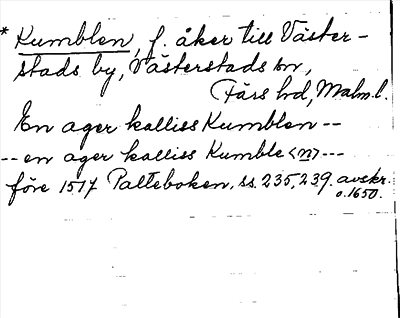 * Kumblen, f. åker till Väster-
stads by, Västerstads sn,
Färs hd, Malm. l.
En ager kalliss Kumblen --
-- en ager kalliss Kumble <n> ---
före 1517 Palteboken, ss. 235, 239. avskr.
o. 1650.